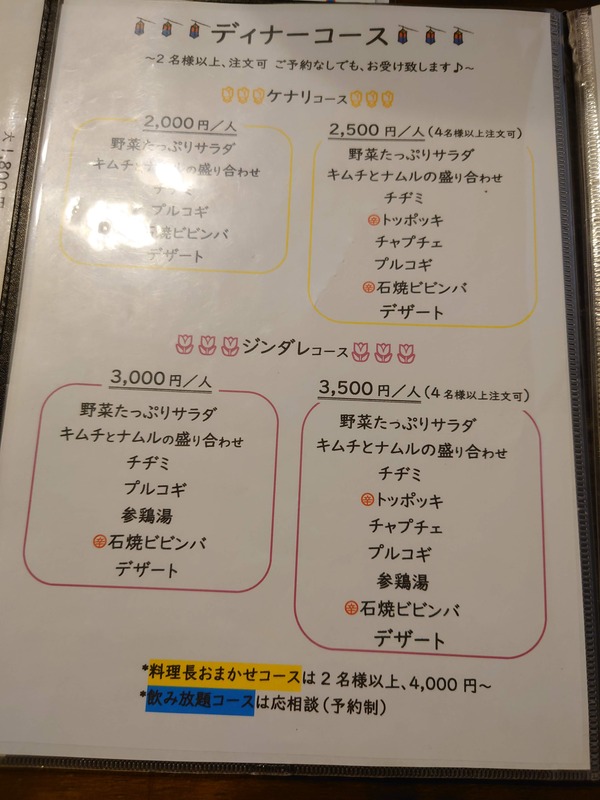 ディナーコース
～2名様以上、注文可 ご予約なしでも、お受け致します♪～
ケナリコース
2,000円/人
野菜たっぷりサラダ
キムチとナムルの盛り合わせ
チヂミ
プルコギ
石焼ビビンバ
デザート
2,500円/人(4名様以上注文可)
野菜たっぷりサラダ
キムチとナムルの盛り合わせ
チヂミ
辛トッポッキ
チャプチェ
プルコギ
辛石焼ビビンバ
デザート
ジンダレコース
3,000円/人
野菜たっぷりサラダ
キムチとナムルの盛り合わせ
チヂミ
プルコギ
参鶏湯
辛石焼ビビンバ
デザート
3,500円/人(4名様以上注文可)
野菜たっぷりサラダ
キムチとナムルの盛り合わせ
チヂミ
辛トッポッキ
チャプチェ
プルコギ
参鶏湯
辛石焼ビビンバ
デザート
*料理長おまかせコースは2名様以上、4,000円～
*飲み放題コースは応相談(予約制)
大1,800円